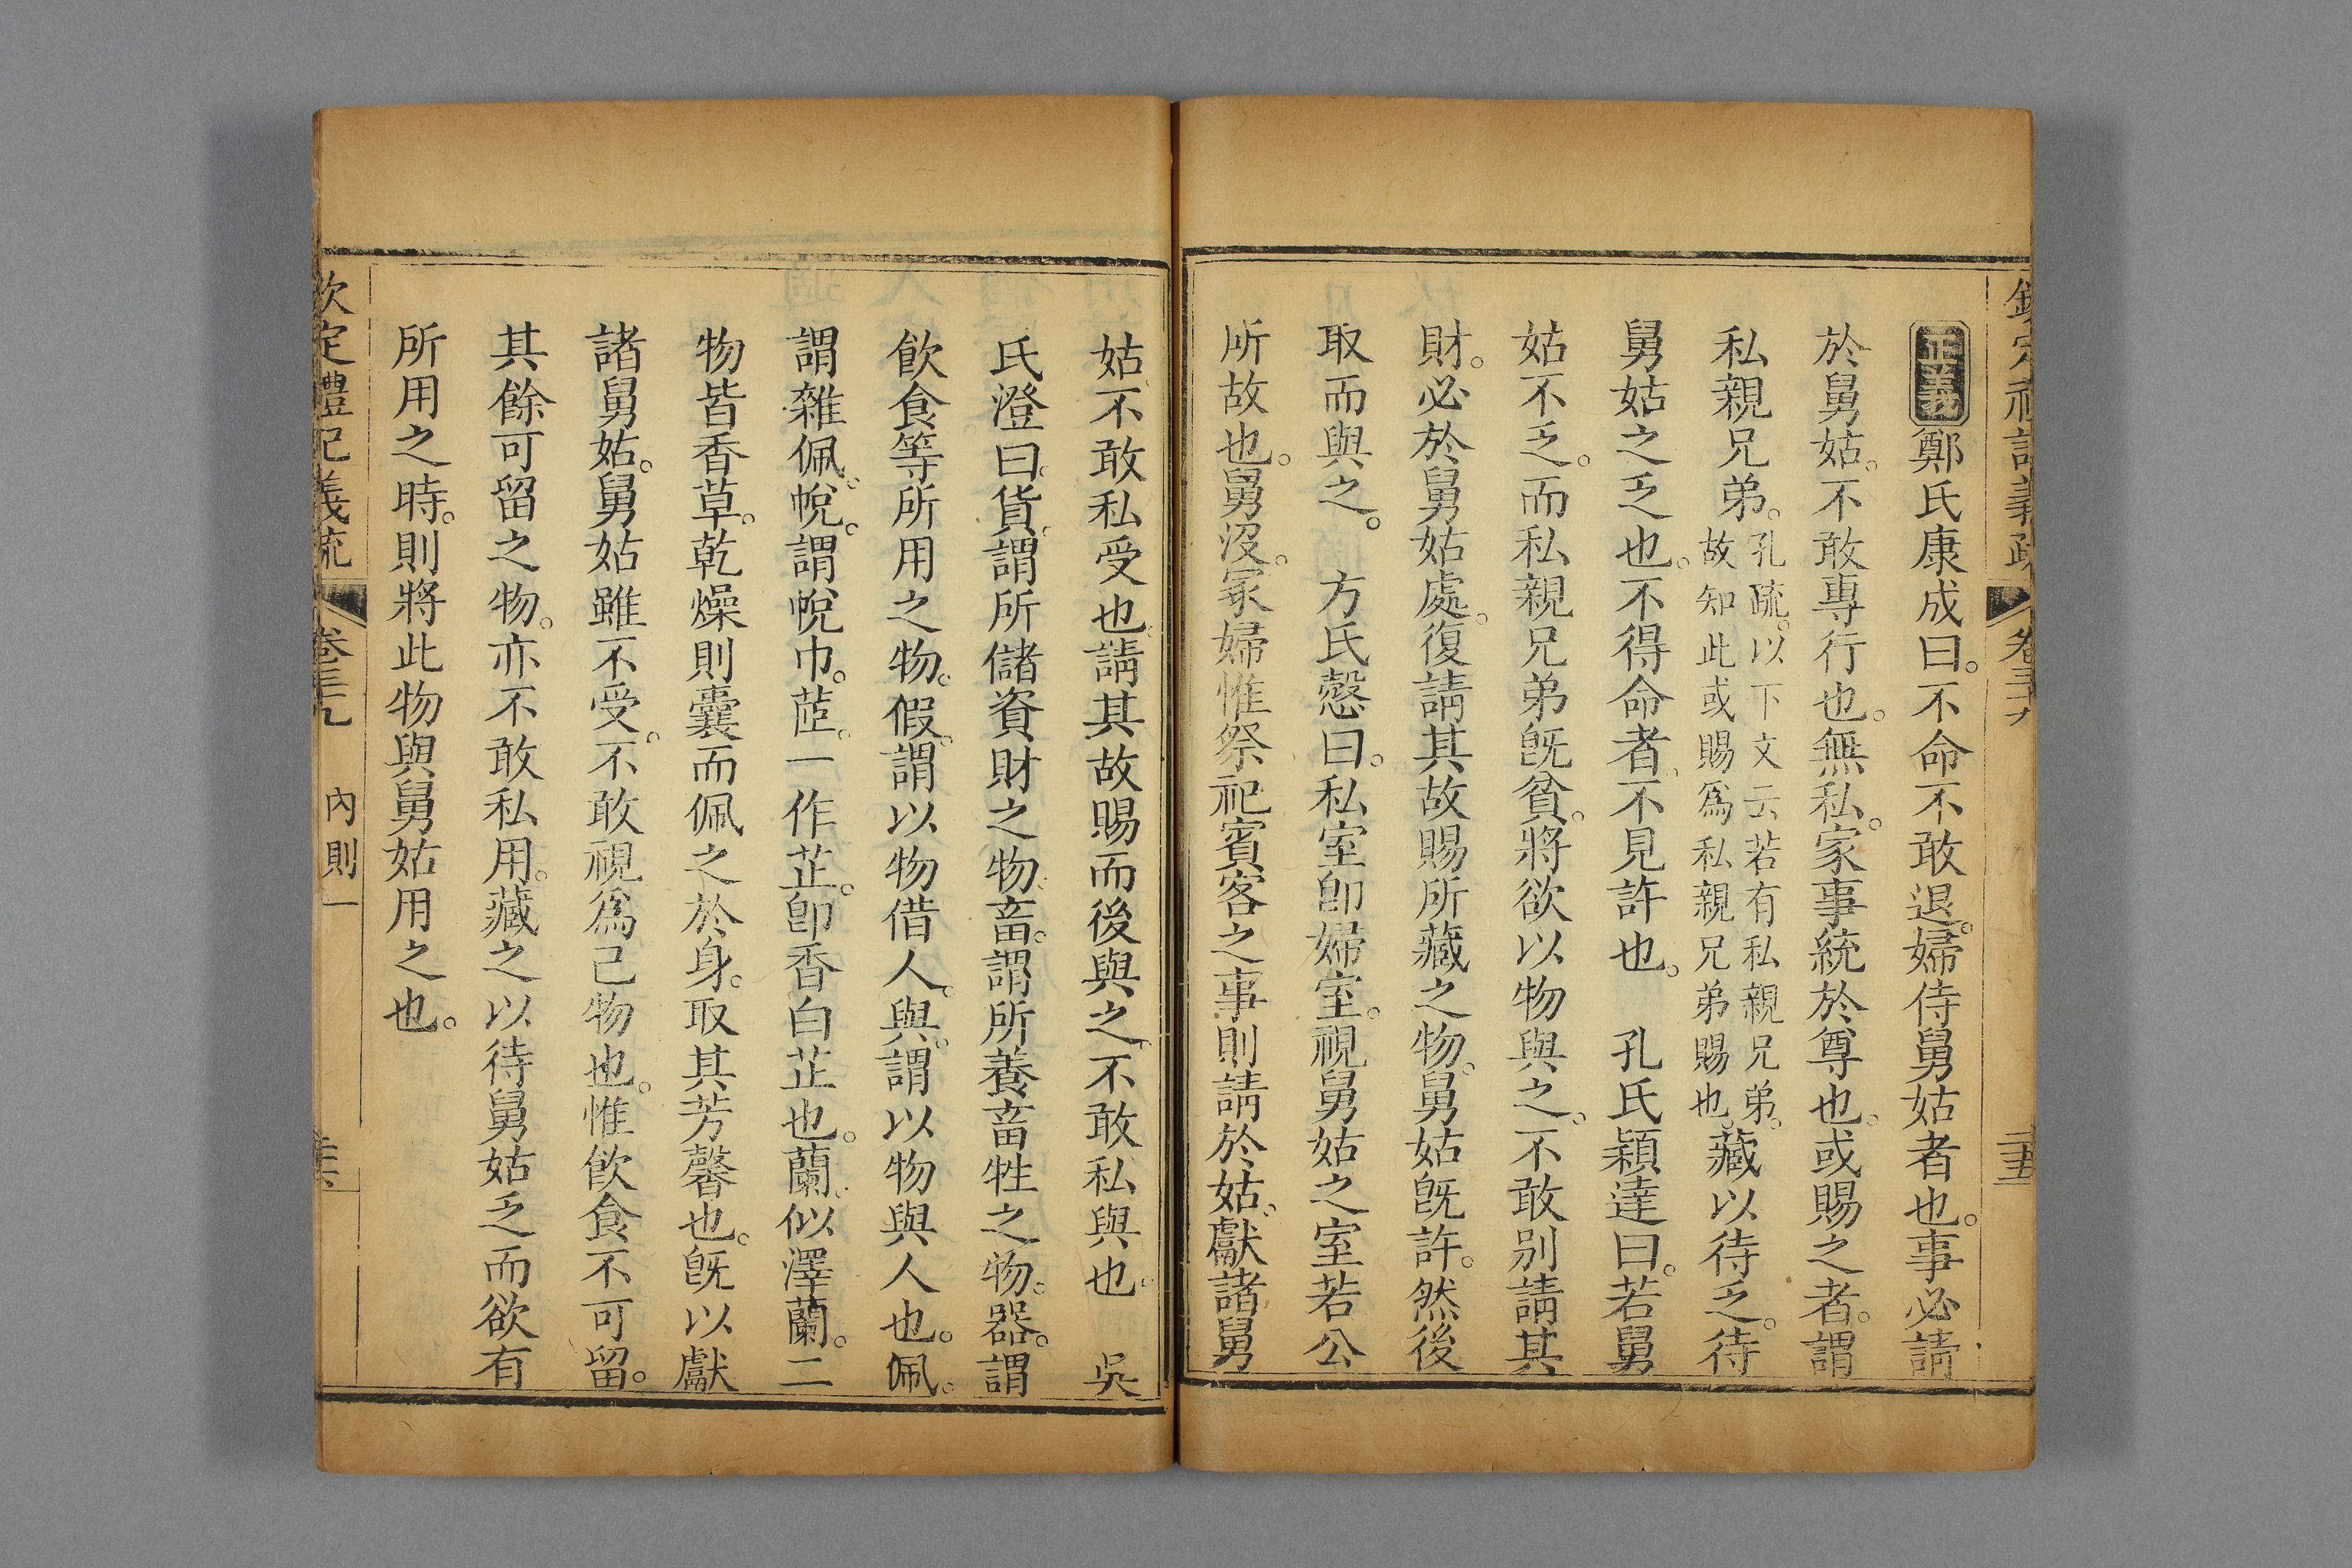 欽定禮記義疏 卷三十九 二十五
正義鄭氏康成曰。不命不敢退。婦侍舅姑者也。事必請
於舅姑。不敢專行也。無私。家事統於尊也。或賜之者。謂
私親兄弟。
孔疏。以下文云若有私親兄弟。
故知此或賜爲私親兄弟賜也。
藏以待乏。待
舅姑之乏也。不得命者、不見許也。 孔氏穎達曰。若舅
姑不乏。而私親兄弟旣貧。將欲以物與之。不敢別請其
財。必於舅姑處。復請其故賜所藏之物。舅姑旣許。然後
取而與之。 方氏慤曰。私室卽婦室。視舅姑之室若公
所故也。舅沒。冢婦惟祭祀賓客之事則請於姑。獻諸舅
姑、不敢私受也。請其故賜而後與之、不敢私與也。 吳
氏澄曰。貨。謂所儲資財之物。畜。謂所養畜牲之物。器。謂
飲食等所用之物。假。謂以物借人。與。謂以物與人也。佩。
謂雜佩。帨。謂帨巾。茝。一作芷。卽香白芷也。蘭。似澤蘭。二
物皆香草。乾燥則囊而佩之於身。取其芳馨也。旣以獻
諸舅姑。舅姑雖不受。不敢視爲己物也。惟飲食不可留。
其餘可留之物。亦不敢私用。藏之以待舅姑乏而欲有
所用之時。則將此物與舅姑用之也。
欽定禮記義疏 卷三十九 內則一